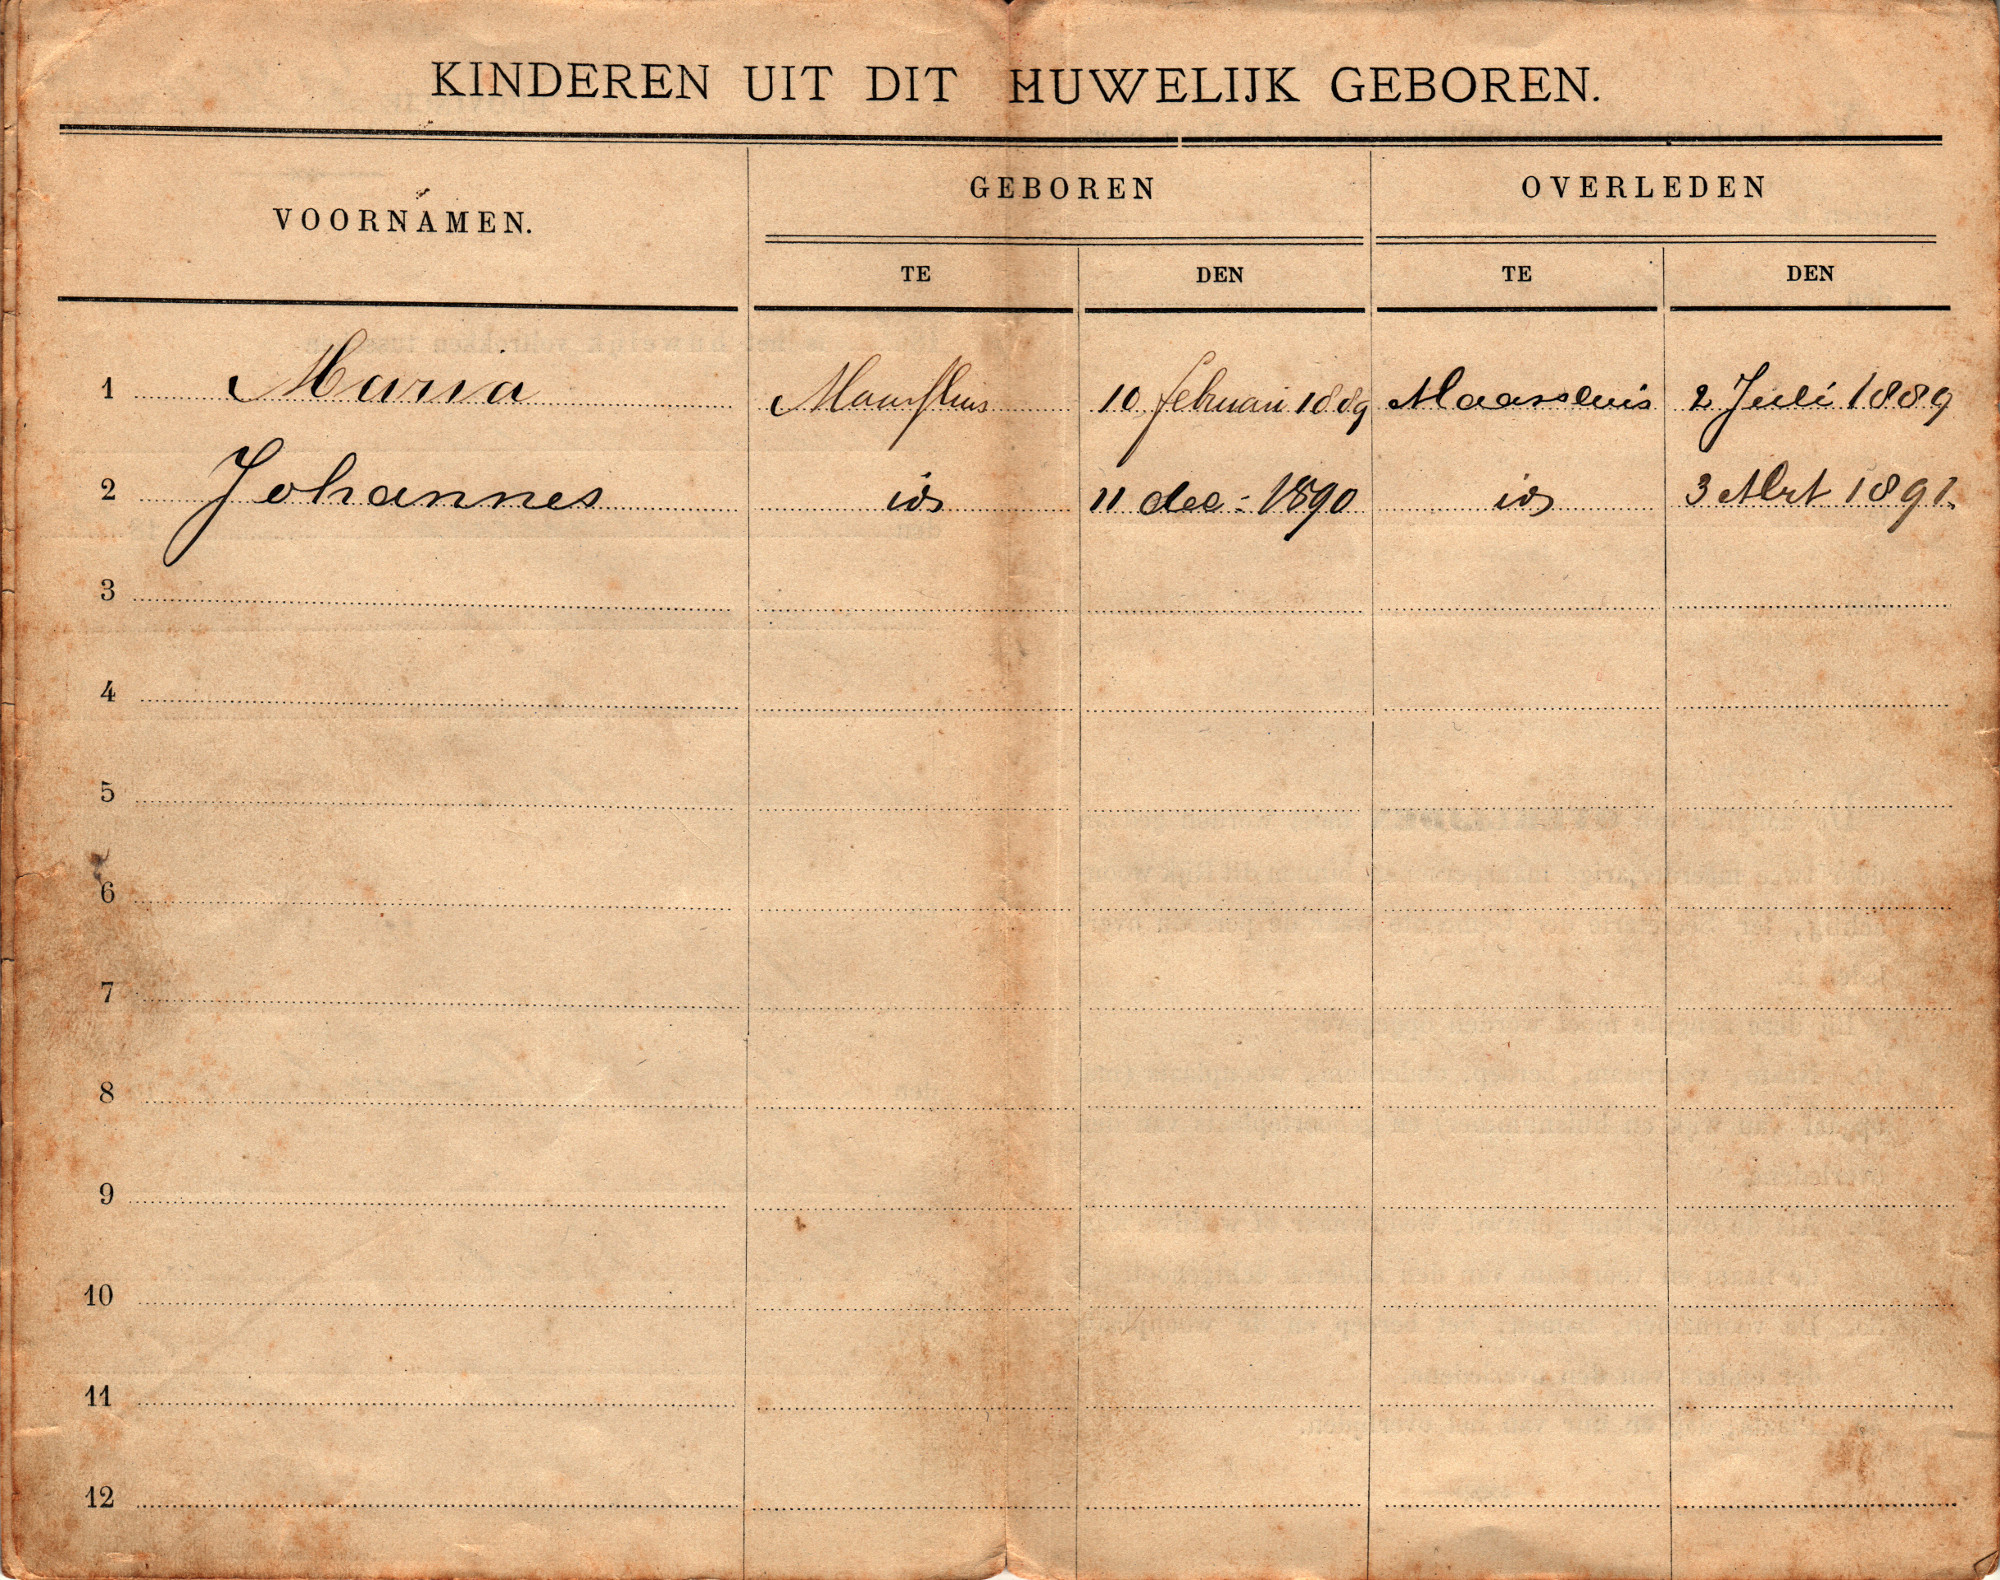 KINDEREN UIT DIT HUWELIJK GEBOREN.
VOORNAMEN.
GEBOREN
OVERLEDEN
TE
DEN
TE
DEN
1 Maria Maassluis 10 februari 1889 Maassluis 2 Juli 1889
2 Johannes id 11 dec 1890 id 3 Mrt 1891.
3
4
5
6
7
8
9
10
11
12